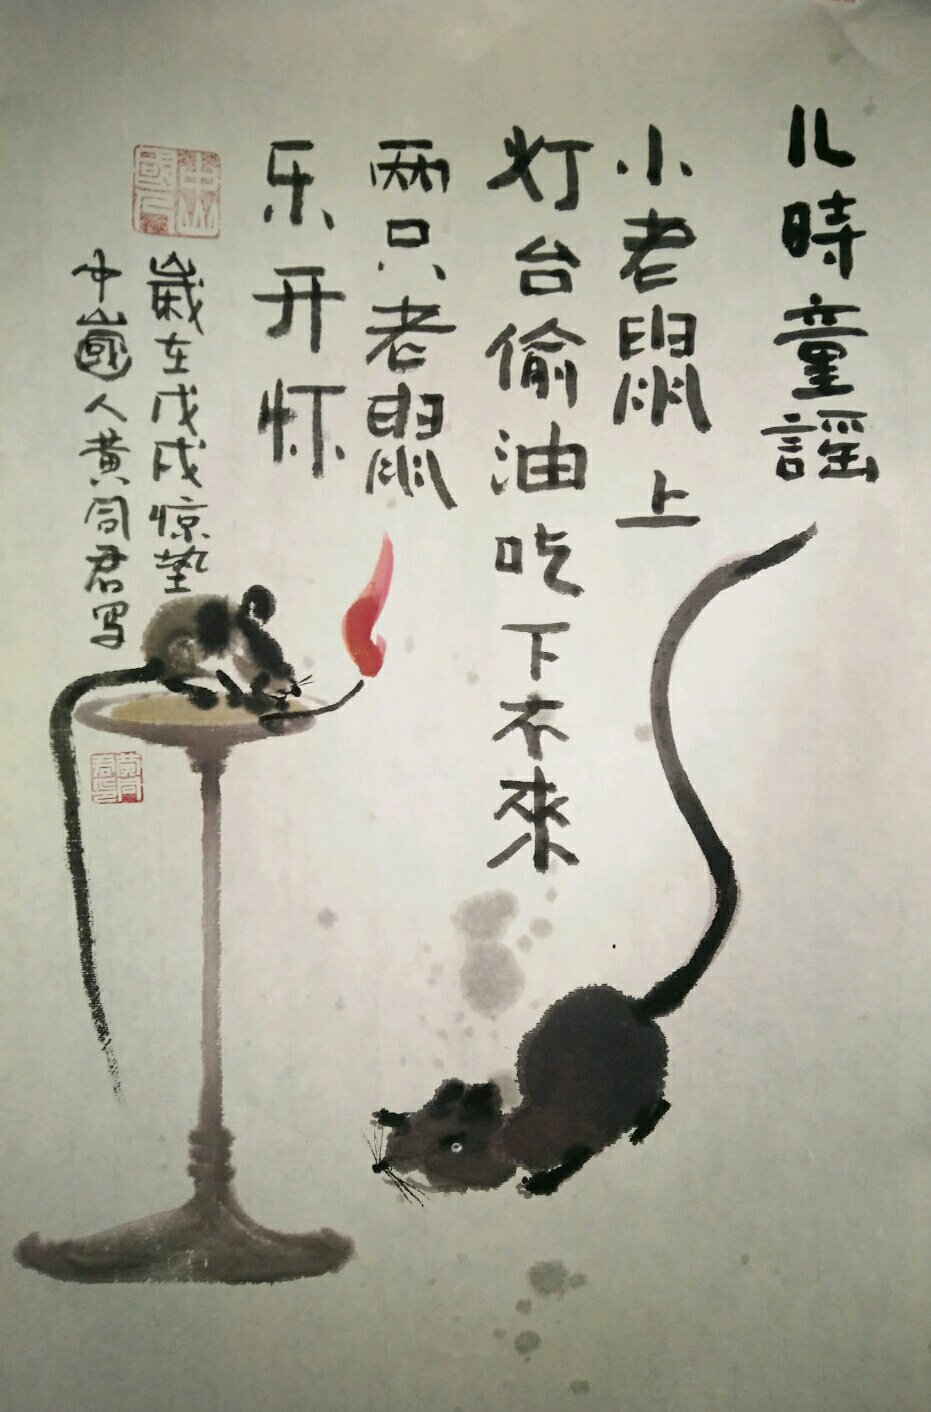 儿時童謡
小老鼠上
灯台偷油吃下不來
两只老鼠
乐开怀
歲在戊戌惊蛰
中國人黄同君写
黄同君印